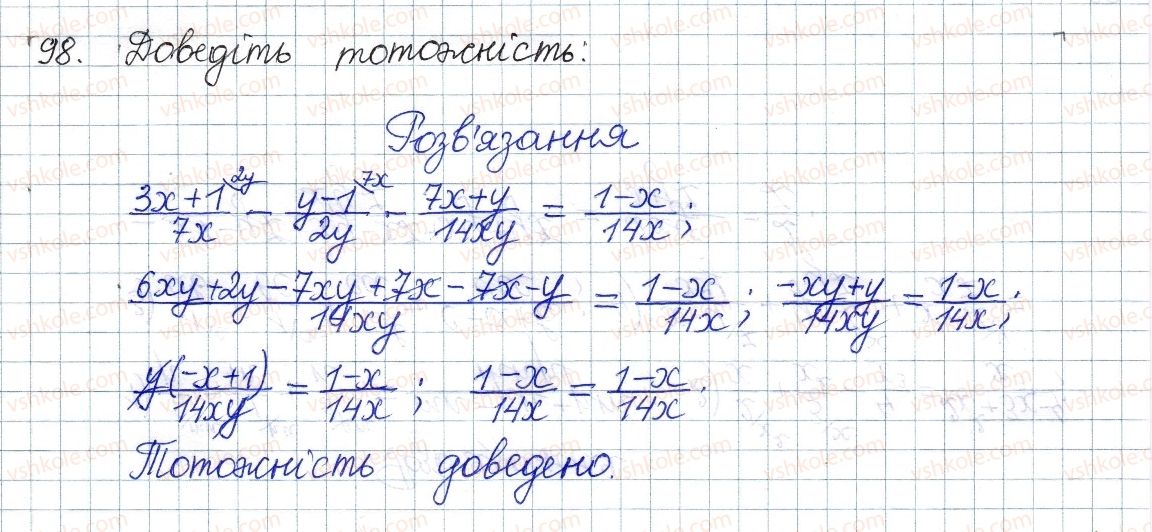 98. Доведіть тотожність:
Розв'язання
(3x+1)/(7x) ^2y - (y-1)/(2y) ^7x - (7x+y)/(14xy) = (1-x)/(14x);
(6xy+2y-7xy+7x-7x-y)/(14xy) = (1-x)/(14x); (-xy+y)/(14xy) = (1-x)/(14x);
y(-x+1)/(14xy) = (1-x)/(14x); (1-x)/(14x) = (1-x)/(14x).
Тотожність доведено.